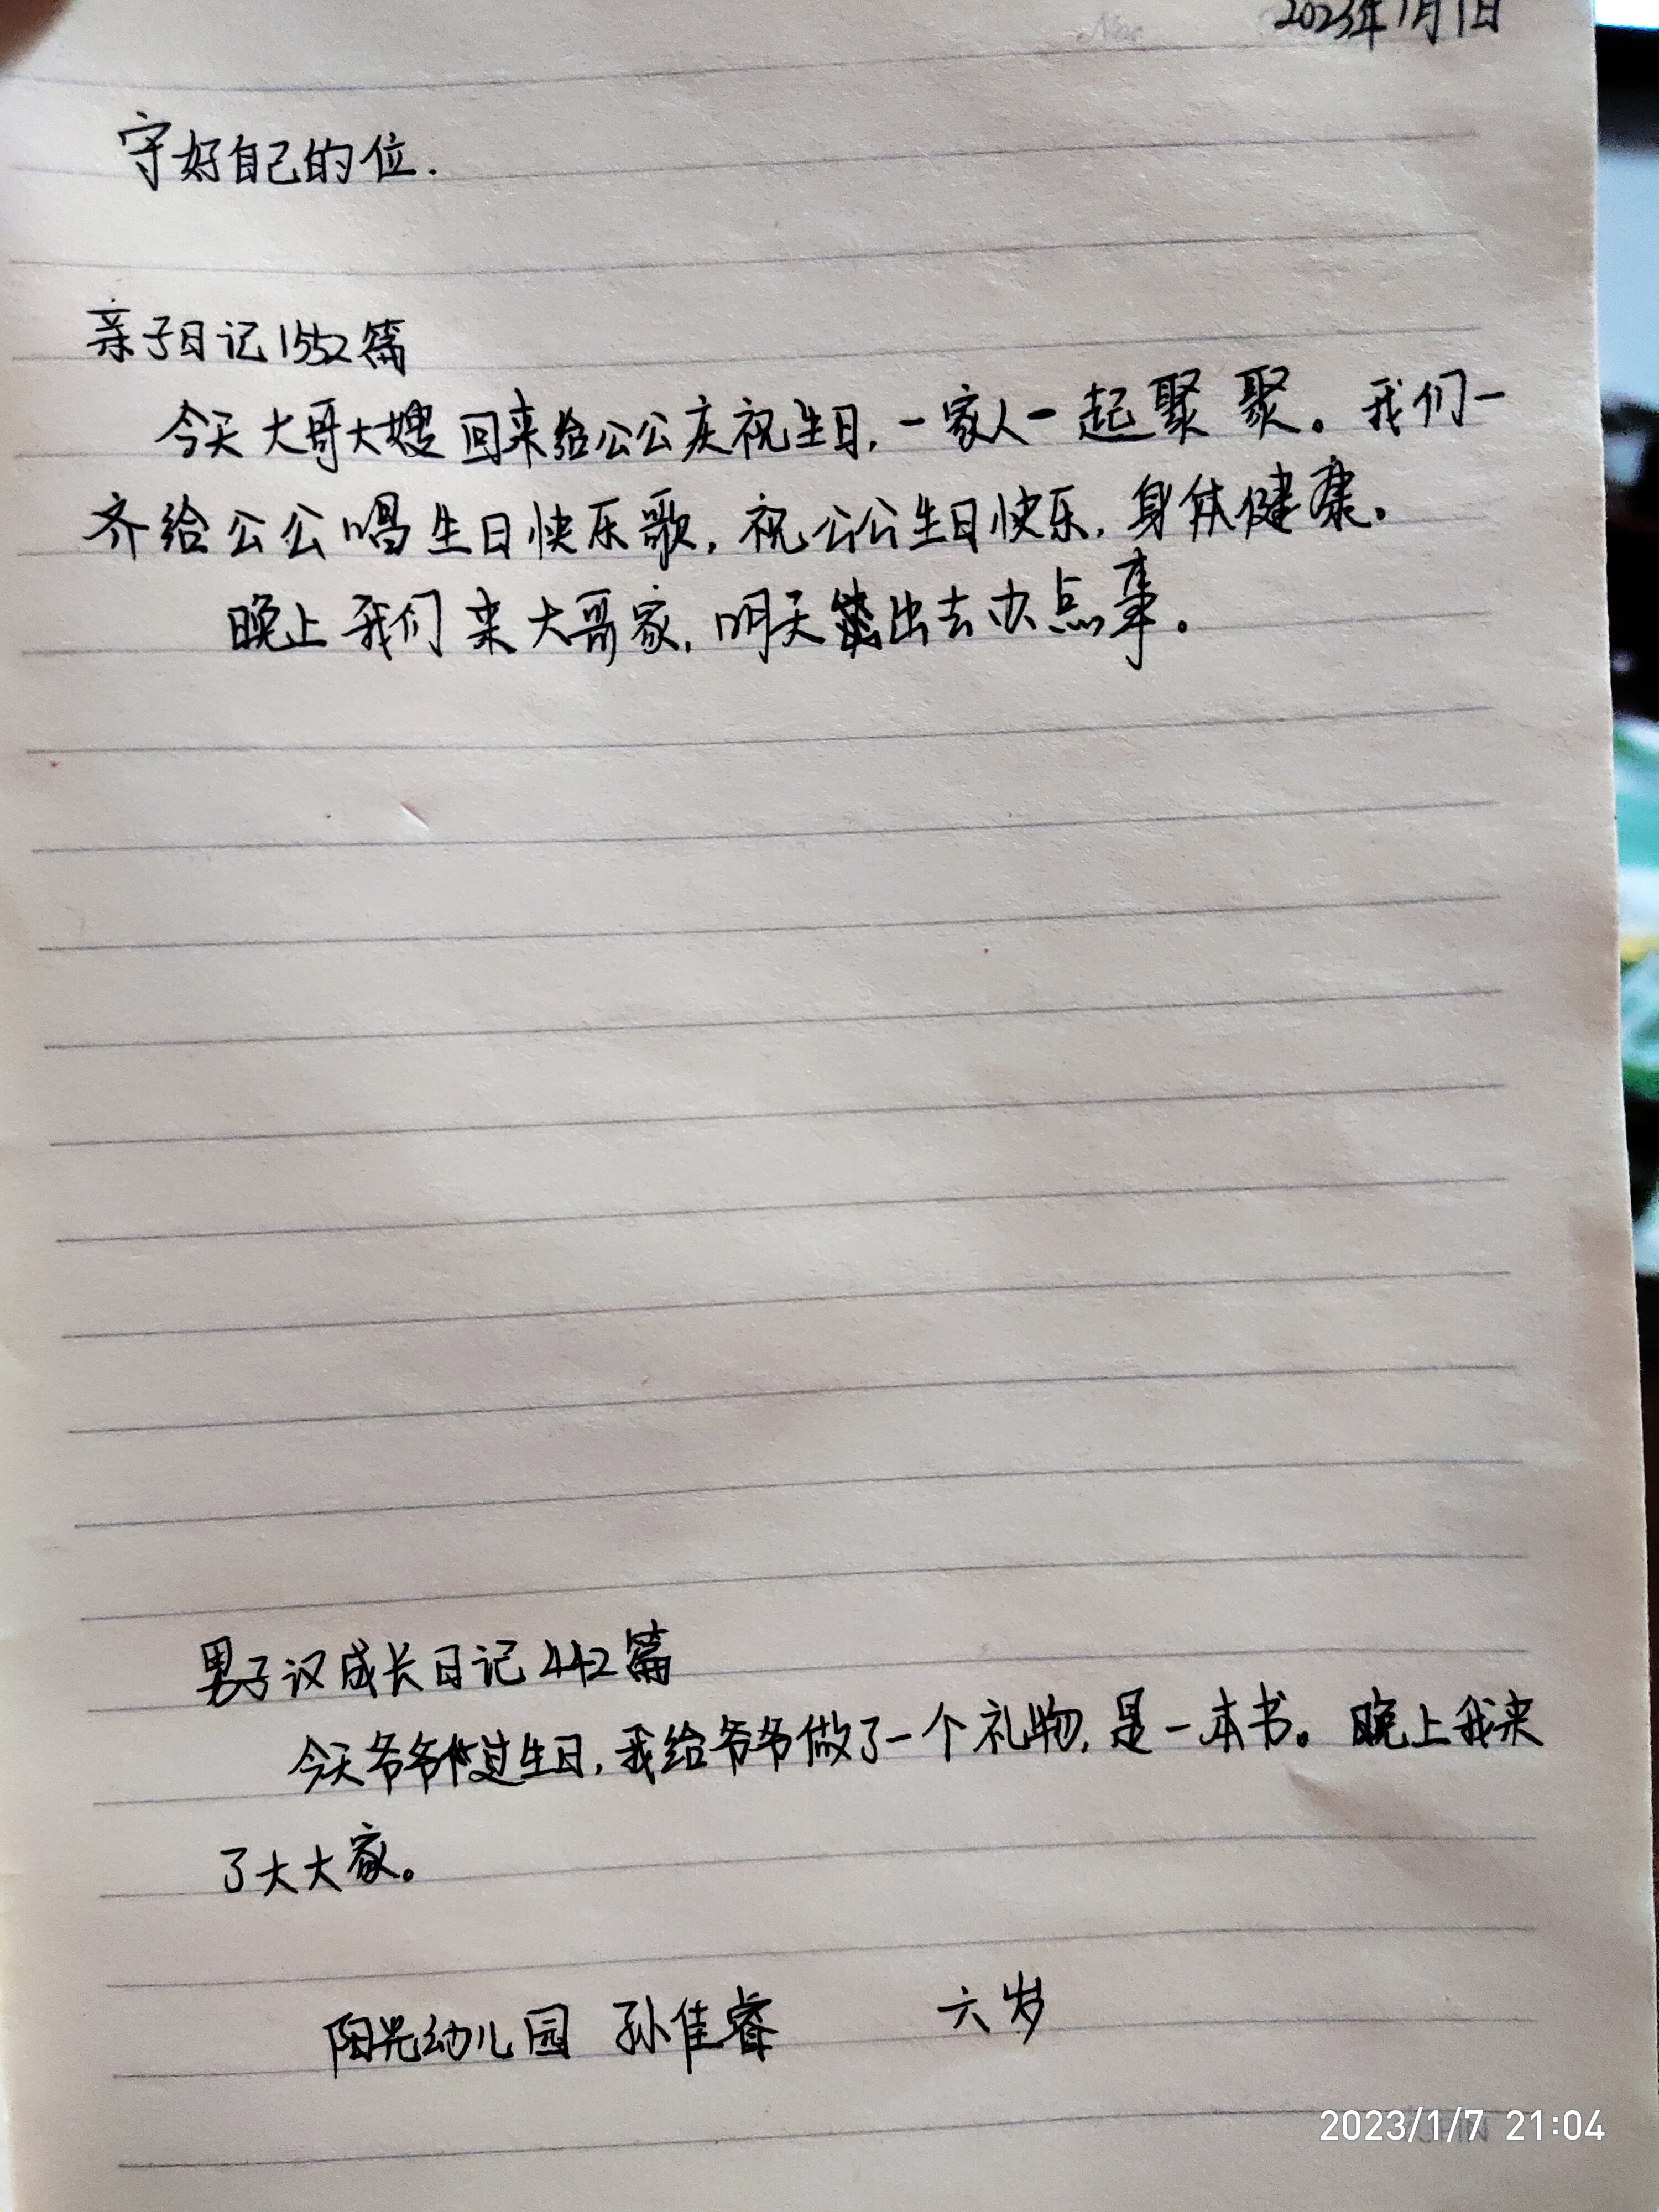 2023年1月1日
守好自己的位.
亲子日记1552篇
今天大哥大嫂回来给公公庆祝生日,一家人一起聚聚。我们一
齐给公公唱生日快乐歌,祝公公生日快乐,身体健康。
晚上我们来大哥家,明天出去办点事。
男子汉成长日记442篇
今天爷爷过生日,我给爷爷做了一个礼物,是一本书。晚上我来
了大大家。
阳光幼儿园 孙佳睿 六岁
2023/1/7 21:04